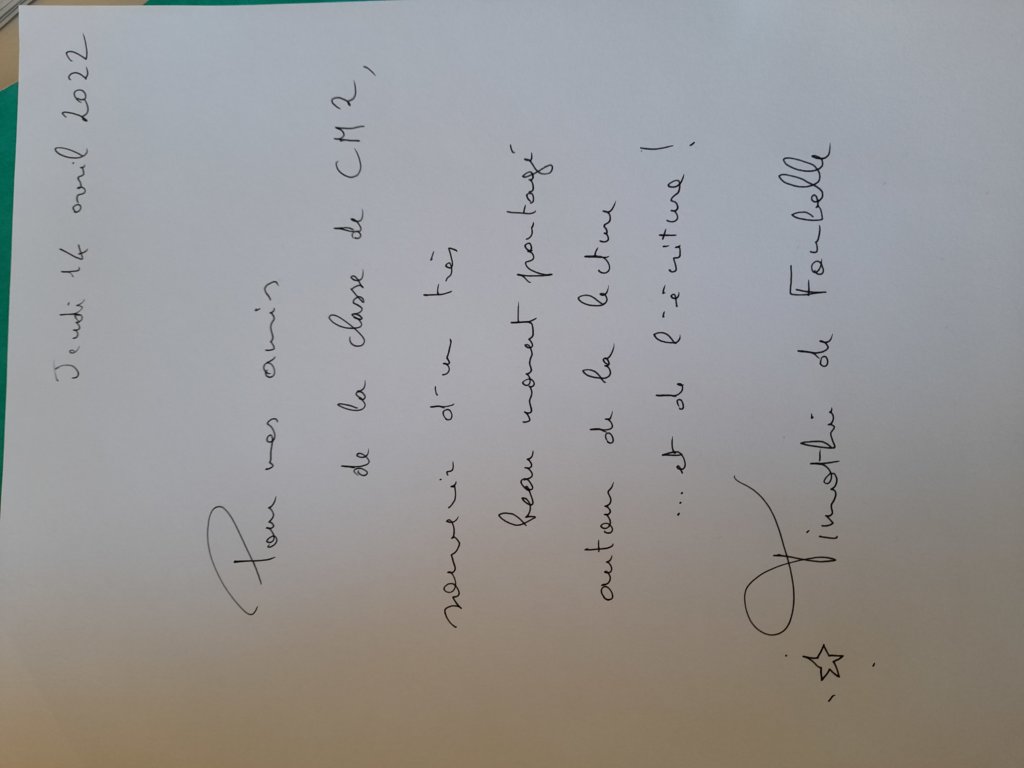 Jeudi 14 avril 2022
Pour mes amis
de la classe de CM2,
souvenir d'un très
beau moment partagé
autour de la lecture
... et de l'écriture !
Timothée de Fombelle